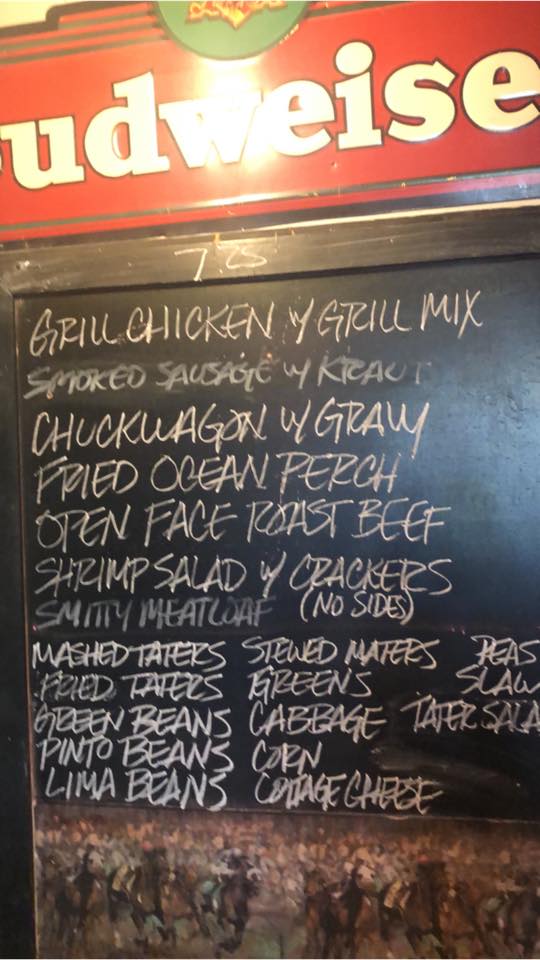 Budweise
7.25
GRILL CHICKEN W/ GRILL MIX
SMOKED SAUSAGE W/ KRAUT
CHUCKWAGON W/ GRAVY
FRIED OCEAN PERCH
OPEN FACE ROAST BEEF
SHRIMP SALAD W/ CRACKERS
SMITTY MEATLOAF (NO SIDES)
MASHED TATERS STEWED MATERS PEAS
FRIED TATERS GREENS SLAW
GREEN BEANS CABBAGE TATER SALA
PINTO BEANS CORN
LIMA BEANS COTTAGE CHEESE